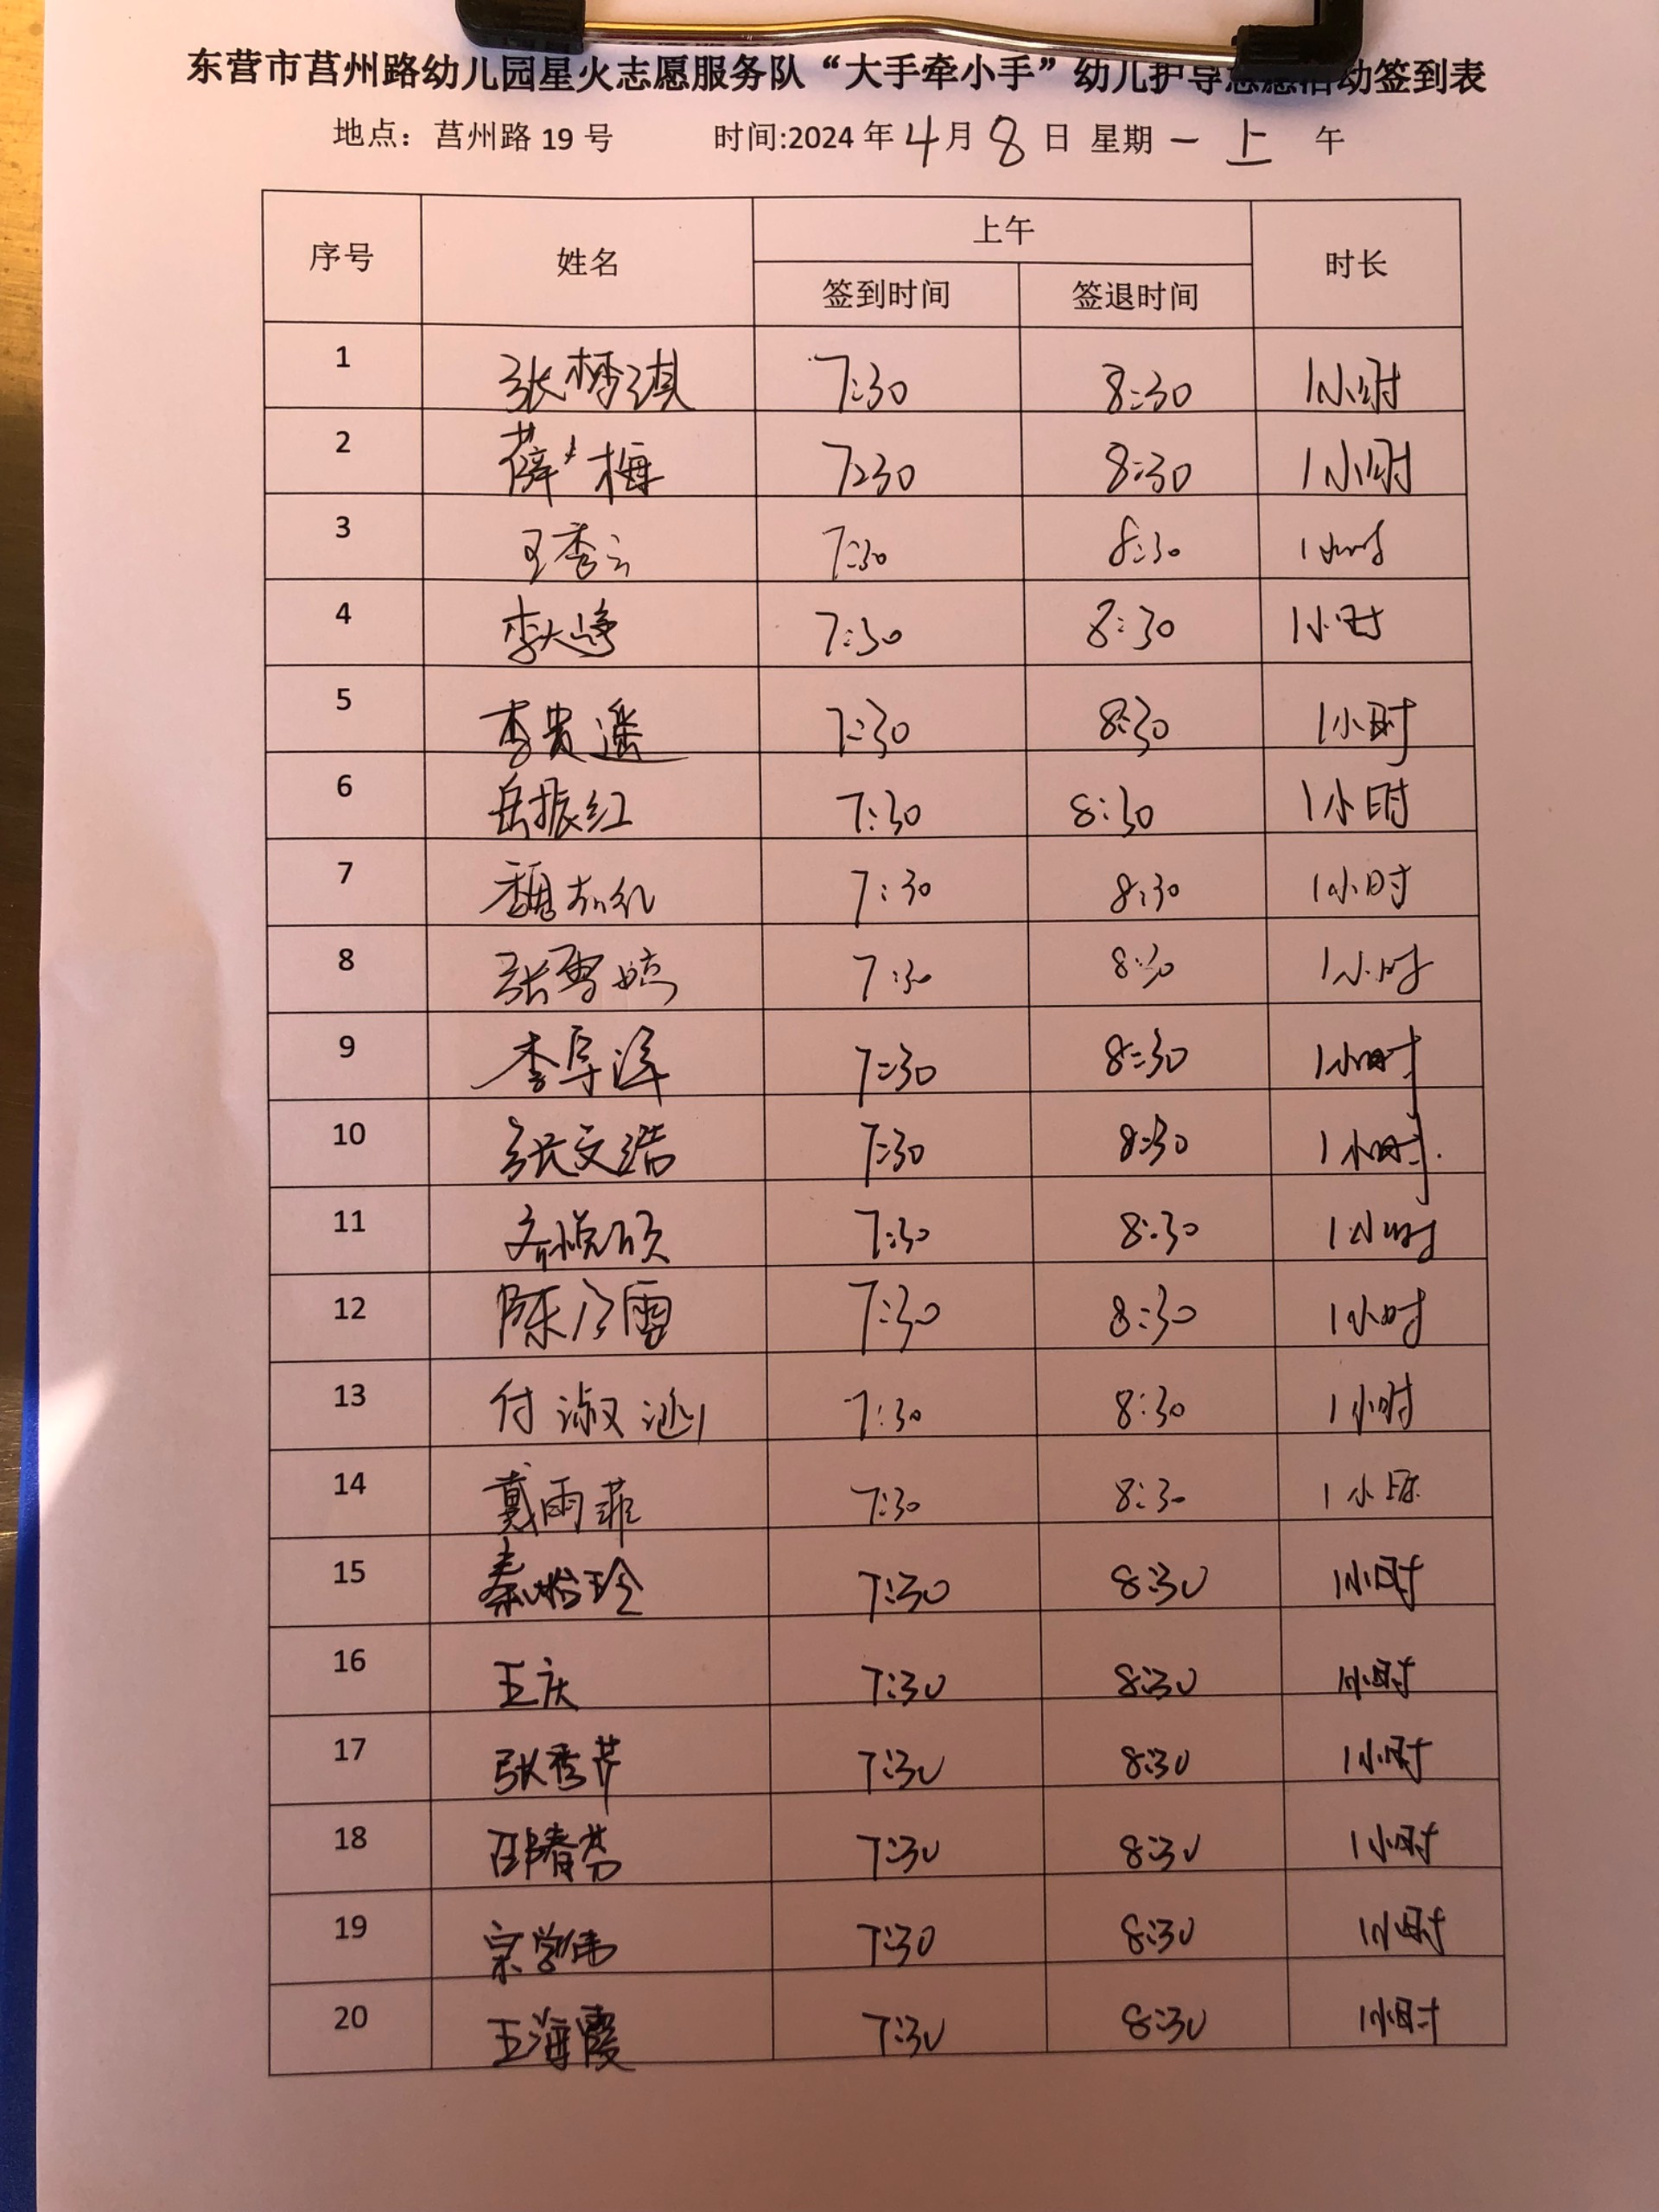 东营市莒州路幼儿园星火志愿服务队“大手牵小手”幼儿护导志愿活动签到表
地点：莒州路 19 号 时间:2024 年 4 月 8 日 星期 一 上 午
序号 姓名 上午 时长
签到时间 签退时间
1 张梦琪 7:30 8:30 1小时
2 薛梅 7:30 8:30 1小时
3 王秀云 7:30 8:30 1小时
4 李大 7:30 8:30 1小时
5 李贵遥 7:30 8:30 1小时
6 岳振红 7:30 8:30 1小时
7 魏 红 7:30 8:30 1小时
8 张雪婷 7:30 8:30 1小时
9 李 7:30 8:30 1小时
10 张文浩 7:30 8:30 1小时
11 齐悦颀 7:30 8:30 1小时
12 陈 雪 7:30 8:30 1小时
13 付淑 7:30 8:30 1小时
14 戴雨菲 7:30 8:30 1小时
15 秦怡玲 7:30 8:30 1小时
16 王庆 7:30 8:30 1小时
17 张秀芹 7:30 8:30 1小时
18 邵春芳 7:30 8:30 1小时
19 宗学伟 7:30 8:30 1小时
20 王海霞 7:30 8:30 1小时